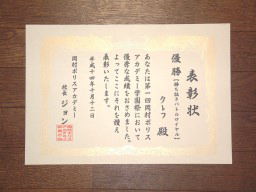 表彰状
優勝【勝ち抜きバトルロイヤル】
クトフ 殿
あなたは第一回岡村ポリス
アカデミー学園祭において
優秀な成績をおさめました。
よってここにそれを讃え
表彰いたします。
平成十四年十月十二日
岡村ポリスアカデミー
校長 ジョン